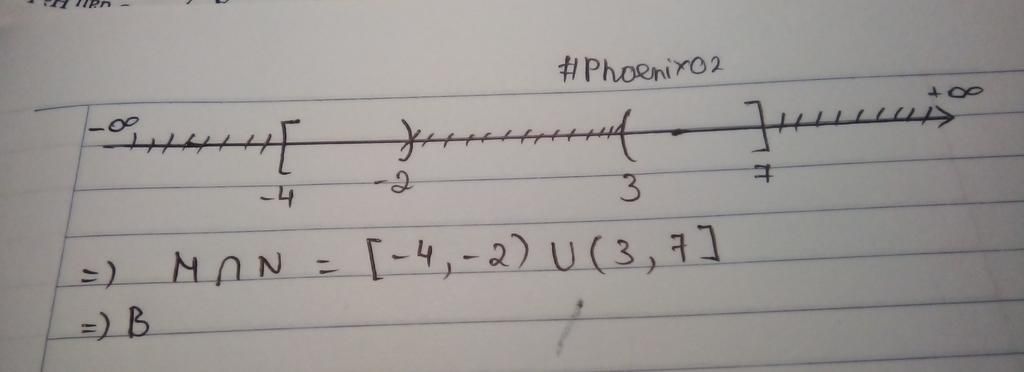 #Phoenix02
-∞ [ ) ( ] +∞
-4 -2 3 7
=) M ∩ N = [-4, -2) ∪ (3, 7]
=) B